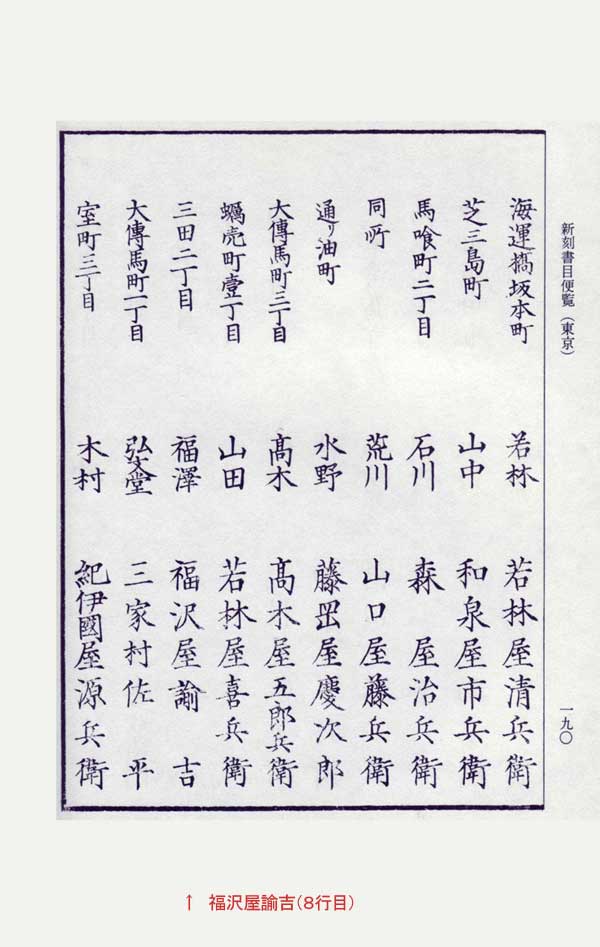 新刻書目便覧（東京）
一九〇
海運橋坂本町 若林 若林屋清兵衛
芝三島町 山中 和泉屋市兵衛
馬喰町二丁目 石川 森屋治兵衛
同所 荒川 山口屋藤兵衛
通リ油町 水野 藤岡屋慶次郎
大傳馬町三丁目 髙木 髙木屋五郎兵衛
蠣売町壹丁目 山田 若林屋喜兵衛
三田二丁目 福澤 福沢屋諭吉
大傳馬町一丁目 弘文堂 三家村佐平
室町三丁目 木村 紀伊國屋源兵衛
↑ 福沢屋諭吉（8行目）